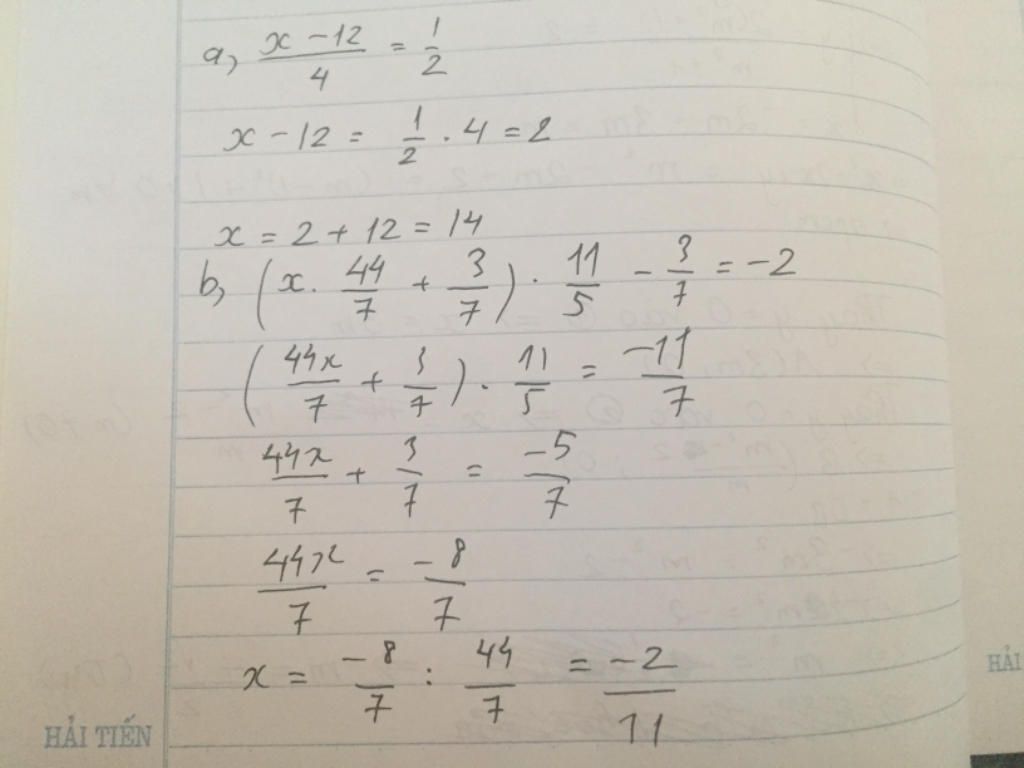 a, \frac{x-12}{4} = \frac{1}{2}
x - 12 = \frac{1}{2} . 4 = 2
x = 2 + 12 = 14
b, (x . \frac{44}{7} + \frac{3}{7}) . \frac{11}{5} - \frac{3}{7} = -2
(\frac{44x}{7} + \frac{3}{7}) . \frac{11}{5} = \frac{-11}{7}
\frac{44x}{7} + \frac{3}{7} = \frac{-5}{7}
\frac{44x}{7} = \frac{-8}{7}
x = \frac{-8}{7} : \frac{44}{7} = \frac{-2}{11}
HẢI TIẾN
HẢI